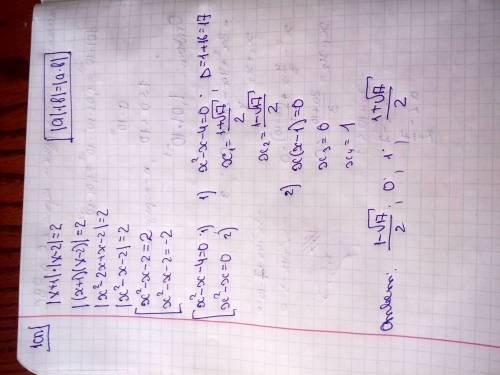 1сп)
|x+1|·|x-2|=2
|a|·|b|=|a·b|
|(x+1)(x-2)|=2
|x²-2x+x-2|=2
|x²-x-2|=2
[x²-x-2=2
[x²-x-2=-2
[x²-x-4=0 1)
[x²-x=0 2)
1) x²-x-4=0; D=1+16=17
x₁=(1+√17)/2;
x₂=(1-√17)/2
2) x(x-1)=0
x₃=0
x₄=1
Ответ: (1-√17)/2; 0; 1; (1+√17)/2